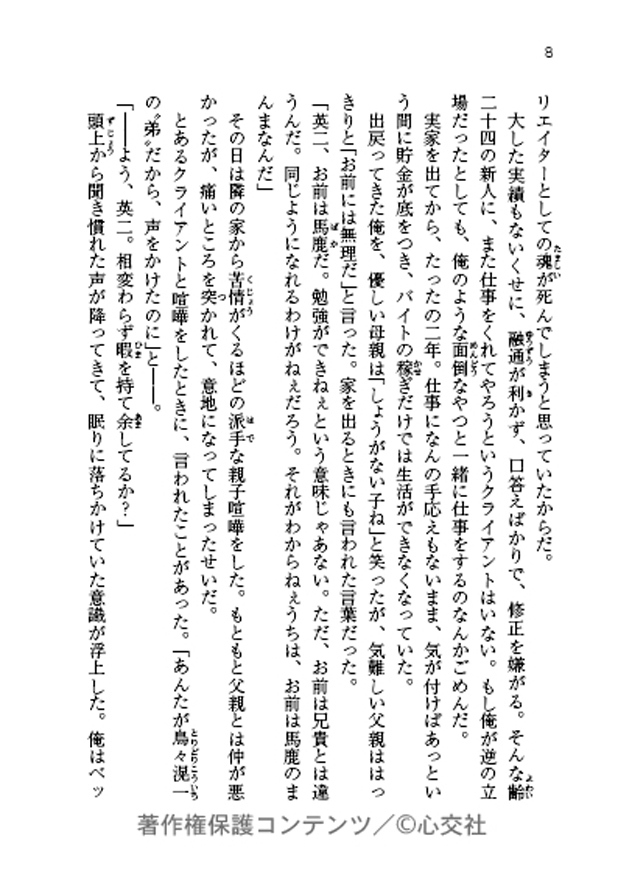 8
リエイターとしての魂が死んでしまうと思っていたからだ。
大した実績もないくせに、融通が利かず、口答えばかりで、修正を嫌がる。そんな齢
二十四の新人に、また仕事をくれてやろうというクライアントはいない。もし俺が逆の立
場だったとしても、俺のような面倒なやつと一緒に仕事をするのなんかごめんだ。
実家を出てから、たったの二年。仕事になんの手応えもないまま、気が付けばあっとい
う間に貯金が底をつき、バイトの稼ぎだけでは生活ができなくなっていた。
出戻ってきた俺を、優しい母親は「しょうがない子ね」と笑ったが、気難しい父親ははっ
きりと「お前には無理だ」と言った。家を出るときにも言われた言葉だった。
「英二、お前は馬鹿だ。勉強ができねぇという意味じゃあない。ただ、お前は兄貴とは違
うんだ。同じようになれるわけがねぇだろう。それがわからねぇうちは、お前は馬鹿のま
んまなんだ」
その日は隣の家から苦情がくるほどの派手な親子喧嘩をした。もともと父親とは仲が悪
かったが、痛いところを突かれて、意地になってしまったせいだ。
とあるクライアントと喧嘩をしたときに、言われたことがあった。「あんたが鳥々滉一
の〝弟〟だから、声をかけたのに」と――。
「――よう、英二。相変わらず暇を持て余してるか？」
頭上から聞き慣れた声が降ってきて、眠りに落ちかけていた意識が浮上した。俺はベッ
著作権保護コンテンツ／©心交社